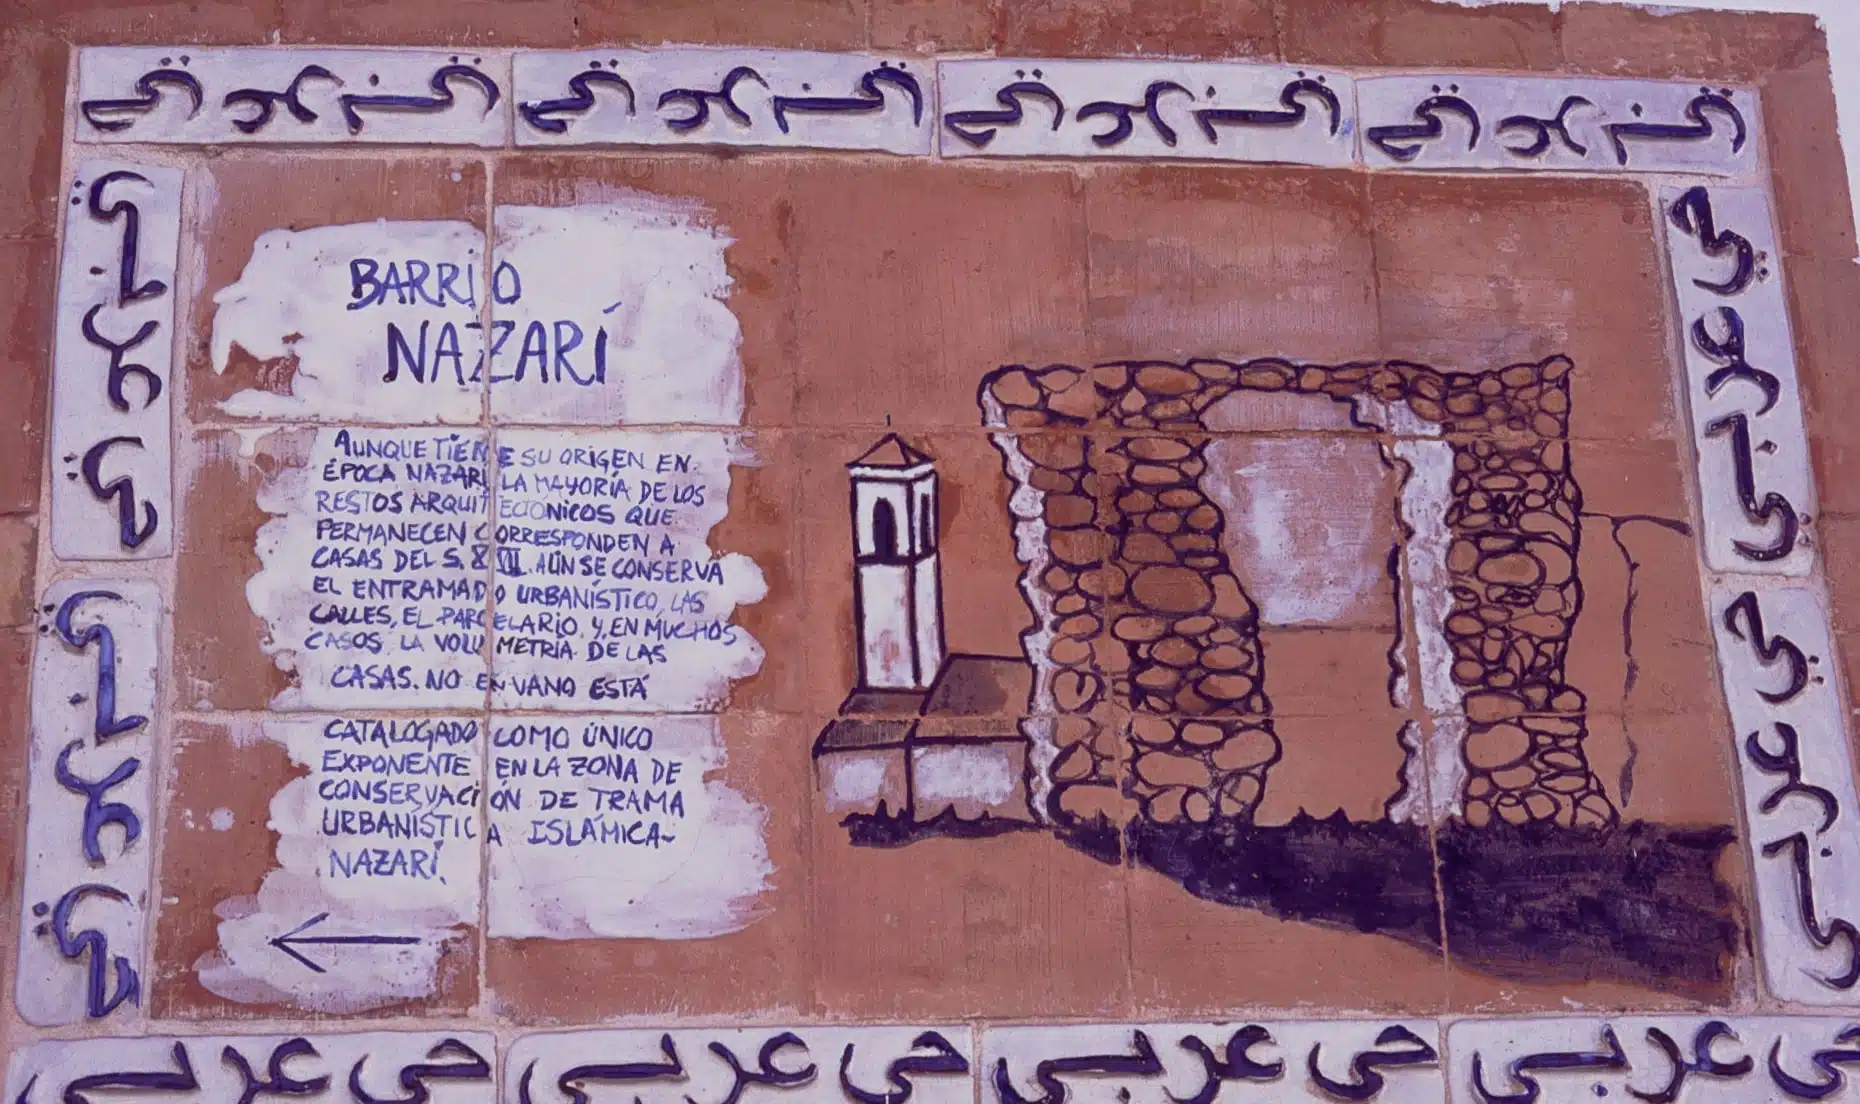 حي عربي حي عربي حي عربي حي عربي
BARRIO
NAZARÍ
AUNQUE TIENE SU ORIGEN EN
ÉPOCA NAZARI LA MAYORÍA DE LOS
RESTOS ARQUITECTONICOS QUE
PERMANECEN CORRESPONDEN A
CASAS DEL S. XVII. AÚN SE CONSERVA
EL ENTRAMADO URBANÍSTICO, LAS
CALLES, EL PARCELARIO, Y, EN MUCHOS
CASOS, LA VOLUMETRÍA DE LAS
CASAS. NO EN VANO ESTÁ
CATALOGADO COMO ÚNICO
EXPONENTE EN LA ZONA DE
CONSERVACIÓN DE TRAMA
URBANÍSTICA ISLÁMICA-
NAZARÍ.
حي عربي
حي عربي
حي عربي
حي عربي
حي عربي حي عربي حي عربي حي عربي